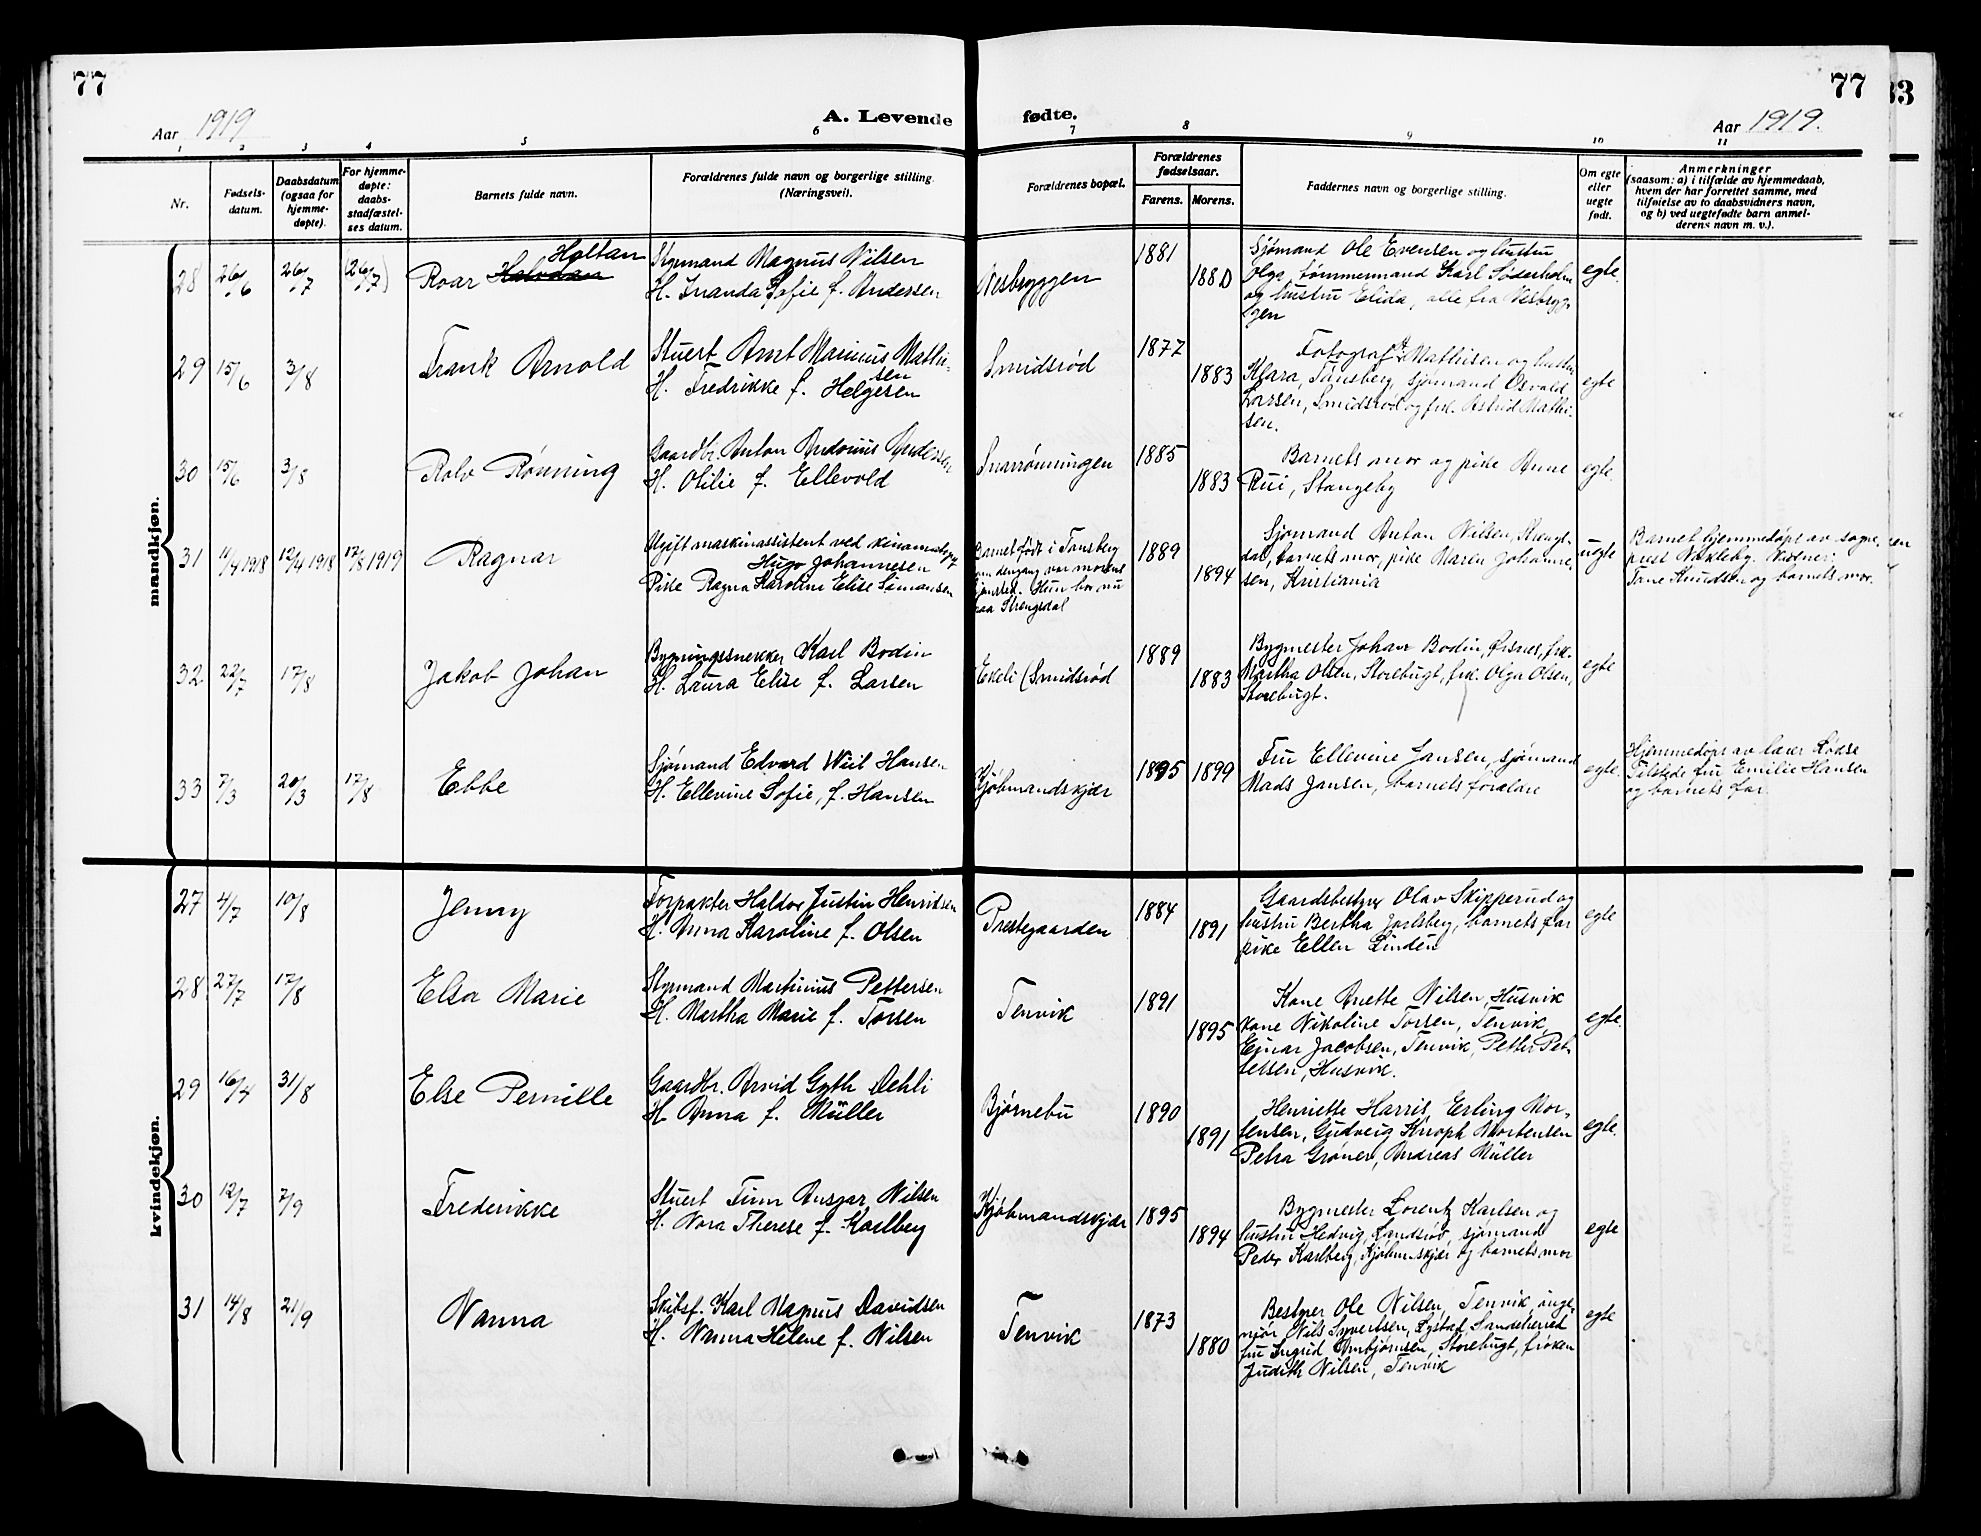 77
77
33
Aar 1919
A. Levende
fødte.
Aar 1919.
1 2 3 4 5 6 7 8 9 10 11
Nr.
Fødsels-
datum.
Daabsdatum
(ogsaa for
hjemme-
døpte).
For hjemme-
døpte:
daabs-
stadfæstel-
ses datum.
Barnets fulde navn.
Forældrenes fulde navn og borgerlige stilling.
(Næringsvei).
Forældrenes bopæl.
Forældrenes
fødselsaar.
Farens. Morens.
Faddernes navn og borgerlige stilling.
Om egte
eller
uegte
født.
Anmerkninger
(saasom: a) i tilfælde av hjemmedaab,
hvem der har forrettet samme, med
tilføielse av to daabsvidners navn,
og b) ved uegtefødte barn anmel-
derens navn m. v.).
mandkjøn.
28 26/6 26/7 (26/7)
Holtan
Roar Halvdan
Styrmand Magnus Nilsen
H. Inanda Sofie f. Andersen
Nesbryggen
1881
1880
Sjømand Ole Evensen og hustru
Olga, tømmermand Karl Söderholm
og hustru Elida, alle fra Nesbryg-
gen
egte.
29 15/6 3/8
Frank Arnold
Stuert Arnt Marinius Mathi-
sen
H. Fredrikke f. Helgesen
Smidsrød
1877
1883
Fotograf A. Mathisen og hustru
Klara, Tønsberg, sjømand Osvald
Larsen, Smidsrød og frk. Astrid Mathi-
sen.
egte
30 15/6 3/8
Rolv Rönning
Gaardbr. Anton Andonius Andersen
H. Otilie f. Ellevold
Snarrönningen
1885
1883
Barnets mor og pike Anne
Rui, Stangeby
egte.
31 11/4 1918 12/4 1918 17/8 1919
Ragnar
Ugift maskinassistent ved kinematogr
Hugo Johannesen
Pike Ragna Karoline Elise Simonsen
Barnet født i Tønsberg
som dengang var morens
hjemsted. Hun bor nu
paa Strengsdal
1889
1894
Sjømand Anton Nilsen, Strengs-
dal, barnets mor, pike Maren Johanne-
sen, Kristiania
uegte
Barnet hjemmedøpt av sogne-
prest Nøkleby. Vidner:
Tane Knudsen og barnets mor.
32 22/7 17/8
Jakob Johan
Bygningssnekker Karl Bodin
H. Laura Elise f. Larsen
Ekeli (Smidsrød
1889
1883
Bygmester Johan Bodin, Ørsnes, frk.
Martha Olsen, Storebugt, frk. Olga Olsen,
Storebugt.
egte
33 7/3 20/3 17/8
Ebbe
Sjømand Edvard Wiil Hansen
H. Ellevine Sofie, f. Hansen
Kjøbmandskjær
1895 1899
Fru Ellevine Jansen, sjømand
Mads Jansen, barnets forældre
egte.
Hjemmedøpt av lærer Rødse
Tilstede fru Emilie Hansen
og barnets far.
kvindekjøn.
27 4/7 10/8
Jenny
Forpakter Haldor Justin Henriksen
H. Anna Karoline f. Olsen
Prestegaarden
1884
1891
Gaardsbestyrer Olav Skipperud og
hustru Bertha Jarlsberg, barnets far
pike Ellen Lindén
egte
28 27/7 17/8
Elsa Marie
Styrmand Martinius Pettersen
H. Martha Marie f. Torsen
Tenvik
1891
1895
Kone Anette Nilsen, Husvik
kone Nikoline Torsen, Tenvik,
Einar Jacobsen, Tenvik, Petter Pet-
tersen, Husvik.
egte.
29 16/4 31/8
Else Pernille
Gaardbr. Arvid Gyth Dehli
H. Anna f. Müller
Bjørnebu
1890
1891
Henriette Harris, Erling Mor-
tensen, Gudveig Knoph Mortensen
Petra Grøner, Andreas Müller
egte.
30 12/7 7/9
Frederikke
Stuert Finn Ansgar Nilsen
H. Nora Therese f. Karlberg
Kjøbmandskjær
1895
1894
Bygmester Lorentz Karlsen og
hustru Hedvig, Sandsrød, sjømand
Peder Karlberg, Kjøbmskjær og barnets mor
egte
31 14/8 21/9
Nanna
Skibsf. Karl Magnus Davidsen
H. Nanna Helene f. Nilsen
Tenvik
1873
1880
Bestyrer Ole Nilsen, Tenvik, inge-
niør Nils Syvertsen, Lystad, Sandeherred
fru Ingrid Arnbjørnsen, Storebugt, frøken
Judith Nilsen, Tenvik
egte